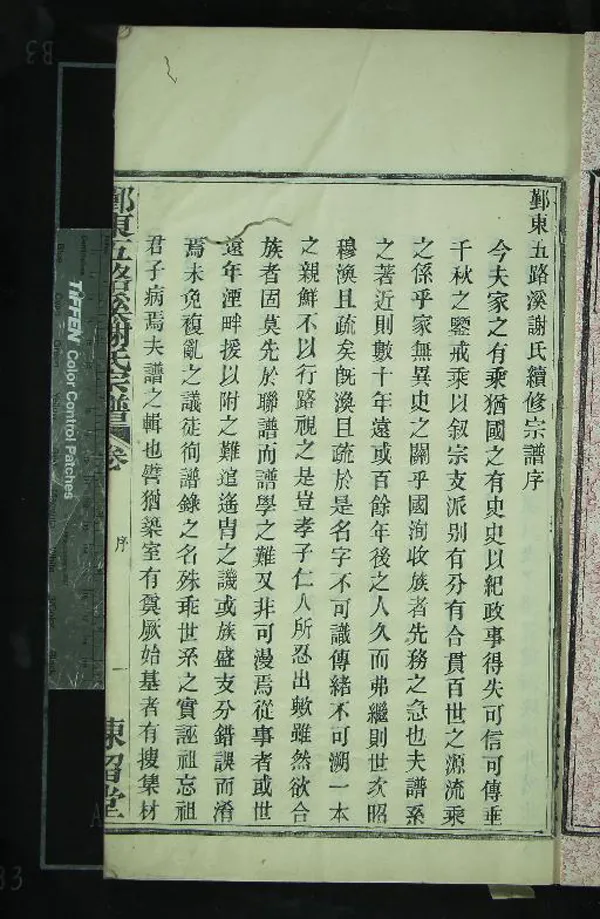 鄞東五路溪謝氏續修宗譜序
今夫家之有乘猶國之有史史以紀政事得失可信可傳垂
千秋之鑒戒乘以叙宗支派别有分有合貫百世之源流乘
之係乎家無異史之關乎國洵收族者先務之急也夫譜系
之著近則數十年遠或百餘年後之人久而弗繼則世次昭
穆渙且疏矣旣渙且疏於是名字不可識傳緒不可溯一本
之親鮮不以行路視之是豈孝子仁人所忍出歟雖然欲合
族者固莫先於聯譜而譜學之難又非可漫焉從事者或世
遠年湮畔援以附之難逭遙胄之譏或族盛支分錯誤而淆
焉未免複亂之議徒徇譜錄之名殊乖世系之實誣祖忘祖
君子病焉夫譜之輯也譬猶築室有奠厥始基者有搜集材
鄞東五路溪謝氏宗譜 卷 序 一 東留堂
TIFFEN Color Control Patches
B3